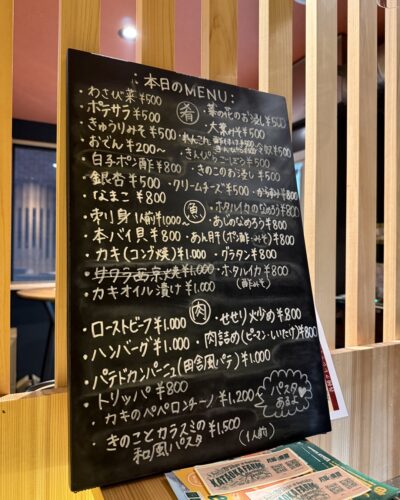 :本日のMENU:
・わさび菜 ¥500
・ポテサラ ¥500
・きゅうりみそ ¥500
・おでん ¥200~
・白子ポン酢 ¥800
・銀杏 ¥500
・クリームチーズ ¥500
・なまこ ¥800
肴
・菜の花のお浸し ¥500
・大葉みそ ¥500
・れんこん
・きのこのお浸し ¥500
魚
・刺り身 1人前 ¥1,000~
・ホタルイカのなめろう ¥800
・あじのなめろう ¥800
・本バイ貝 ¥800
・あん肝(ポン酢・みそ) ¥800
・カキ(コンブ焼) ¥1,000
・グラタン ¥800
・サワラ西京焼 ¥1,000
・ホタルイカ ¥800
(酢みそ)
・カキオイル漬け ¥1,000
肉
・ローストビーフ ¥1,000
・せせり炒め ¥800
・ハンバーグ ¥1,000
・肉詰め(ピーマン・しいたけ) ¥800
・パテドカンパーニュ(田舎風パテ) ¥1,000
・トリッパ ¥800
・カキのペペロンチーノ ¥1,200
パスタ
あるよ
・きのことカラスミの
和風パスタ ¥1,500
(1人前)
KATAOKA FARM